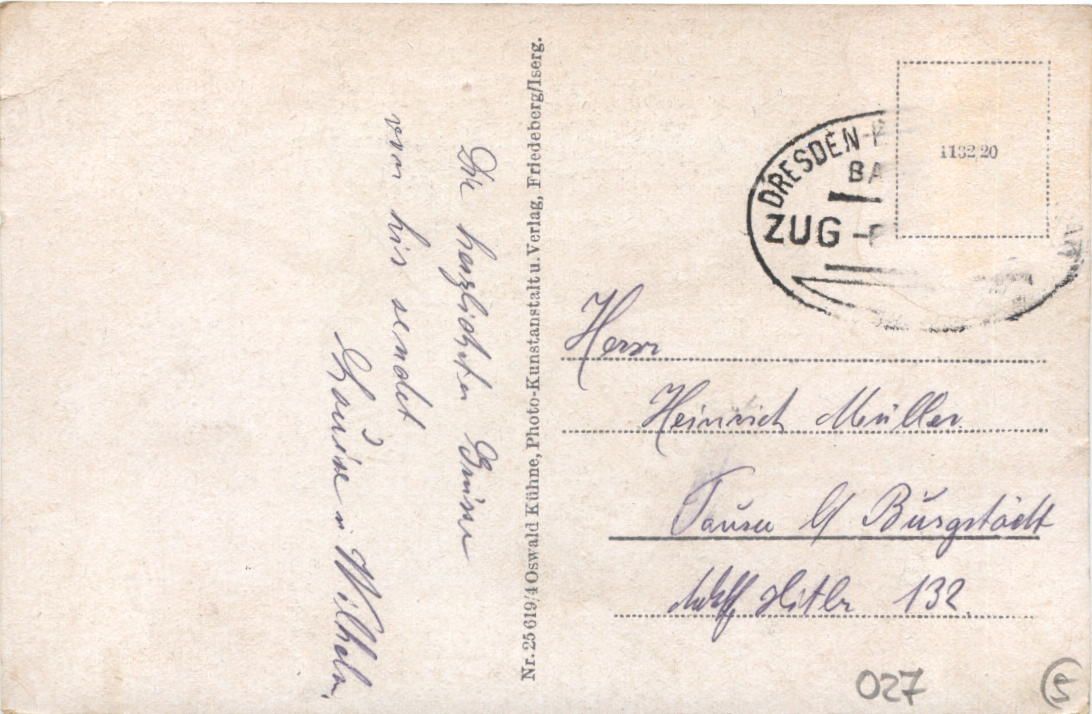 Die herzlichsten Grüsse
von hir sendet
Louise u Wilhelm.
Nr. 25619/4 Oswald Kühne, Photo-Kunstanstalt u. Verlag, Friedeberg/Iserg.
DRESDEN-
BA
ZUG
1132 20
Herr
Heinrich Müller
Taura b/ Burgstädt
Adolf Hitler 132.
027
5